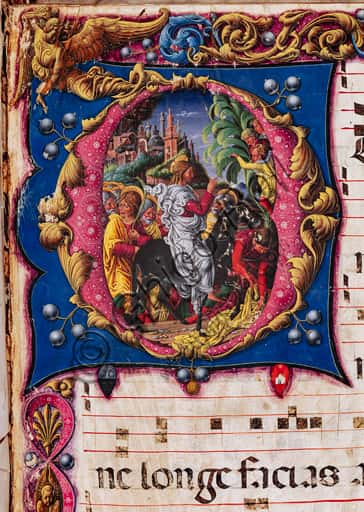 ne longe facias a